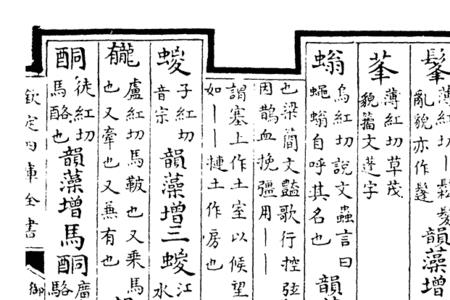 髼薄紅切——鬆髮
亂貌亦作鬔韻藻增
莑薄紅切草茂
貌籀文蓬字
螉烏紅切說文蟲言曰
蠅螉自呼其名也韻
也梁簡文豔歌行控弦
因鵲血挽彊用——
謂塞上作土室以候望
如——揵土作房也
蝬子紅切
音宗韻藻增三蝬江
水
龓盧紅切馬鞁也又乘馬
也又牽也又兼有也
酮徒紅切
馬酪也韻藻增馬酮廣
駱
欽定四庫全書
御